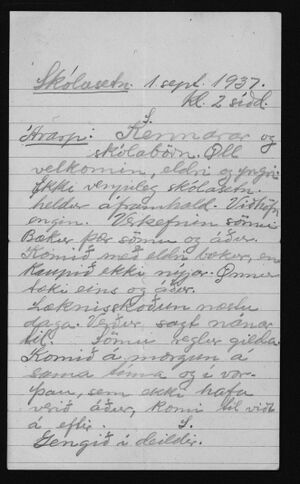 Skólasetn. 1. sept. 1937.
kl. 2 síðd.
S.
Ávarp: Kennarar og
skólabörn. Öll
velkomin, eldri og yngri
Ekki venjuleg skólasetn.
heldur áframhald.
engin. Verkefnin sömu
Bækur þær sömu og áður.
Komið með eldri bækur, en
kaupið ekki nýjar. Önnur
tæki eins og áður.
Læknisskoðun næstu
daga. Verður sagt nánar
til. Sömu reglur gilda.
Komið á morgun á
sama tíma og í vor.
Þau, sem ekki hafa
verið áður, komi til viðt
á eftir. S.
Gengið í deildir.